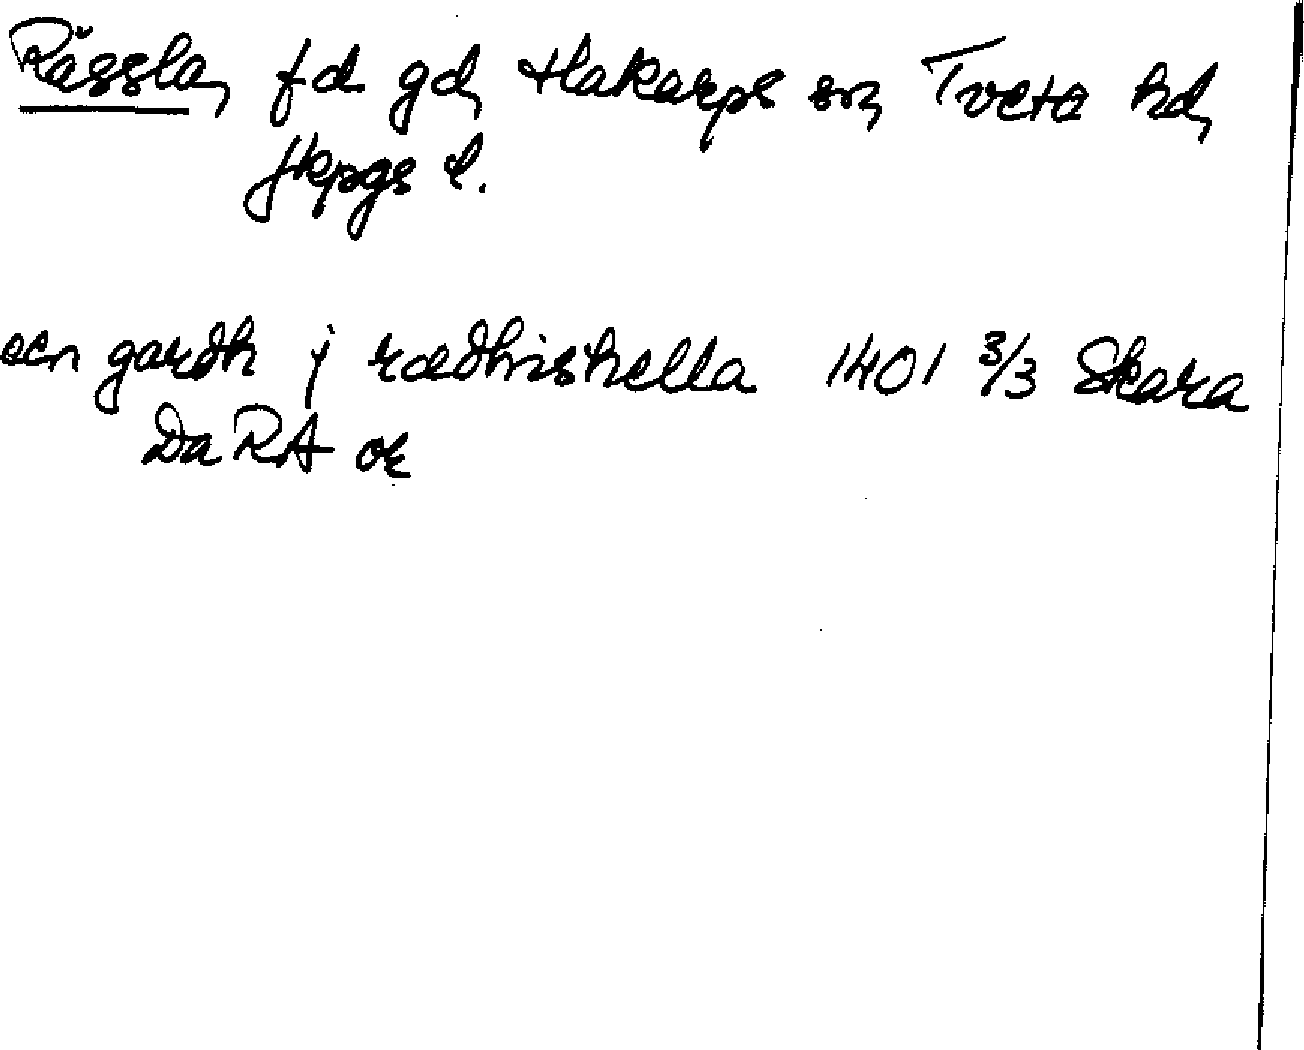 Rässla, fd gd, Hakarps sn, Tveta hd,
Jkpgs l.
een gardh j rædhishella 1401 3/3 Skara
DaRA or